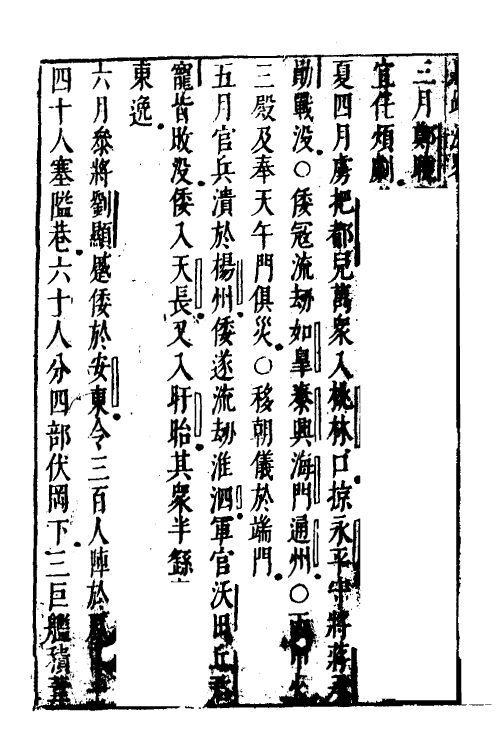 三月鄭曉
宜任煩劇
夏四月虜把都兒萬衆入桃林口掠永平守將蔣承
勛戰没○倭寇流劫如臯泰興海門通州○
三殿及奉天午門俱災○移朝儀於端門
五月官兵潰於楊州倭遂流劫淮泗軍官沃田丘君
寵皆敗没倭入天長又入盱眙其衆半繇
東逸
六月叅將劉顯蹙倭於安東令三百人陣於
四十人塞隘巷六十人分四部伏岡下三巨艦積葦